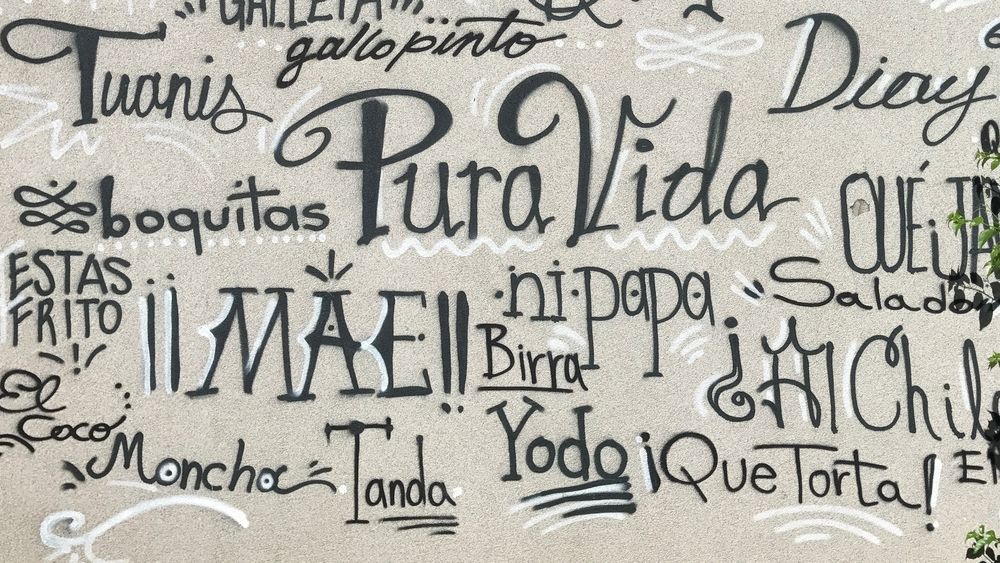 GALLETA
gallo pinto
Tuanis
Pura Vida
Diay
boquitas
QUÉ
ESTAS
FRITO
¡¡MAE!!
ni papa
Salado
Birra
¿Al Chile
El
Coco
Moncha
Tanda
Yodo
¡Que Torta!